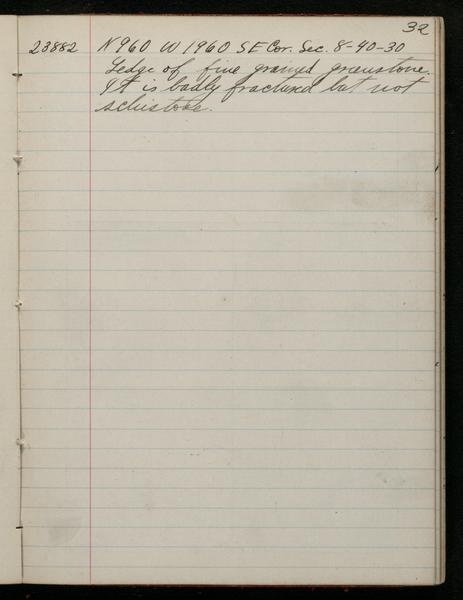 32
23882 N 960 W 1960 S E Cor. Sec. 8-40-30
Ledge of fine grained greenstone.
It is badly fractured but not
schistose.